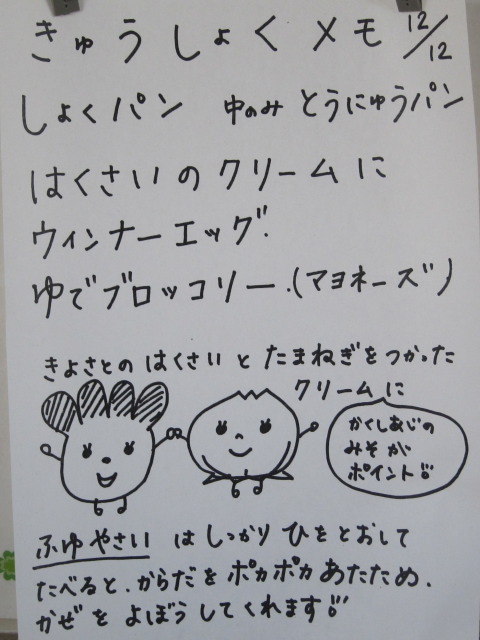 きゅうしょくメモ 12/12
しょくパン 中のみ とうにゅうパン
はくさいのクリームに
ウィンナーエッグ.
ゆでブロッコリー.(マヨネーズ)
きよさとの はくさい と たまねぎを つかった
クリームに
かくしあじの
みそ が
ポイント!!
ふゆやさい は しっかり ひを とおして
たべると、からだを ポカポカ あたため、
かぜを よぼうしてくれます!!